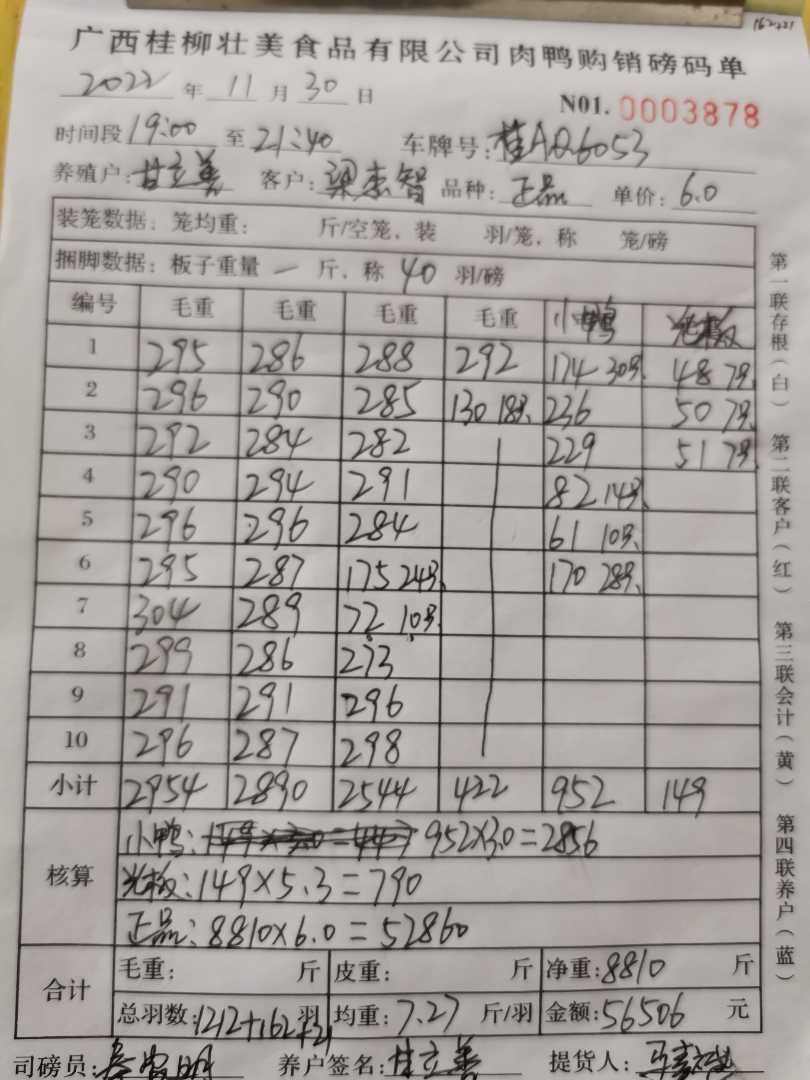 162+21
广西桂柳壮美食品有限公司肉鸭购销磅码单
2022 年 11 月 30 日 N01. 0003878
时间段 19:00 至 21:40 车牌号: 桂AQ6053
养殖户: 甘立善 客户: 梁杰智 品种: 正品 单价: 6.0
装笼数据: 笼均重: 斤/空笼、装 羽/笼、称 笼/磅
捆脚数据: 板子重量 一 斤、称 40 羽/磅
编号 毛重 毛重 毛重 毛重 小鸭 光板
1 295 286 288 292 174 30羽 48 7羽
2 296 290 285 130 18羽 236 50 7羽
3 292 284 282 229 51 7羽
4 290 294 291 82 14羽
5 296 296 284 61 10羽
6 295 287 175 24羽 170 28羽
7 304 289 72 10羽
8 299 286 273
9 291 291 296
10 296 287 298
小计 2954 2890 2544 422 952 149
核算
小鸭: 952×3.0=2856
光板: 149×5.3=790
正品: 8810×6.0=52860
合计
毛重: 斤 皮重: 斤 净重: 8810 斤
总羽数: 1212+162+21 羽 均重: 7.27 斤/羽 金额: 56506 元
司磅员: 养户签名: 甘立善 提货人:
第一联存根(白) 第二联客户(红) 第三联会计(黄) 第四联养户(蓝)